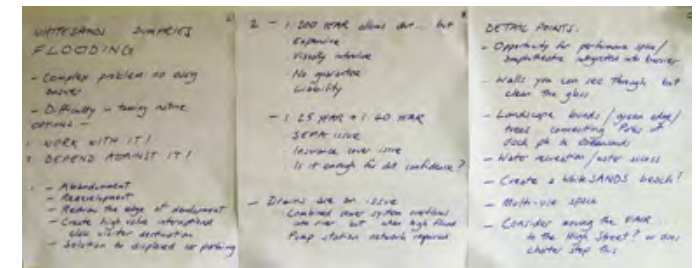 WHITESANDS DUMFRIES
FLOODING
- Complex problem no easy
answer
- Difficulty in taming nature
OPTIONS -
1 WORK WITH IT!
2 DEFEND AGAINST IT!
1 - Abandonment
- Redevelopment
- Redraw the edge of development
- Create high value
visitor destination
- Solution to displaced car parking
2 - 1:200 YEAR allows for... but
- Expensive
- Visually intrusive
- No guarantee
- Liability
- 1:25 YEAR + 1:40 YEAR
- SEPA issue
- Insurance cover issue
- Is it enough for confidence?
- Drains are an issue
Combined sewer system overflows
into river but when high flood
Pump station network required
DETAIL POINTS:
- Opportunity for performance space/
amphitheatre integrated into barrier
- Walls you can see through but
clean the glass
- Landscape bunds/green edge/
trees connecting
dock pk to whitesands
- Water recreation/water access
- Create a WhiteSANDS beach!
- Multi-use space
- Consider moving the FAIR
to the High Street? or does
charter stop this